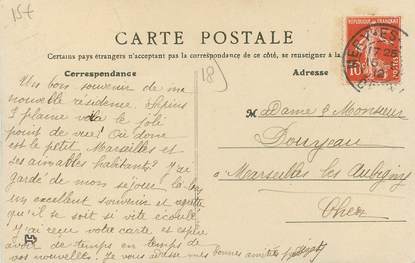 15f
CARTE POSTALE
Certains pays étrangers n'acceptant pas la correspondance de ce côté, se renseigner à la
Correspondance
18
Adresse
RÉPUBLIQUE FRANÇAISE
10
Un bon souvenir de ma
nouvelle résidence.
plaine voila le joli
point de vue! Où donc
est le petit Marseilles et
ses aimables habitants? J'ai
gardé de mon séjour là-bas
un excellent souvenir et regrette
qu'il se soit si vite écoulé.
J'ai reçu votre carte et espère
avoir de temps en temps de
vos nouvelles. Je vous adresse mes bonnes amitiés
Madame & Monsieur
à Marseilles les Aubigny
Cher